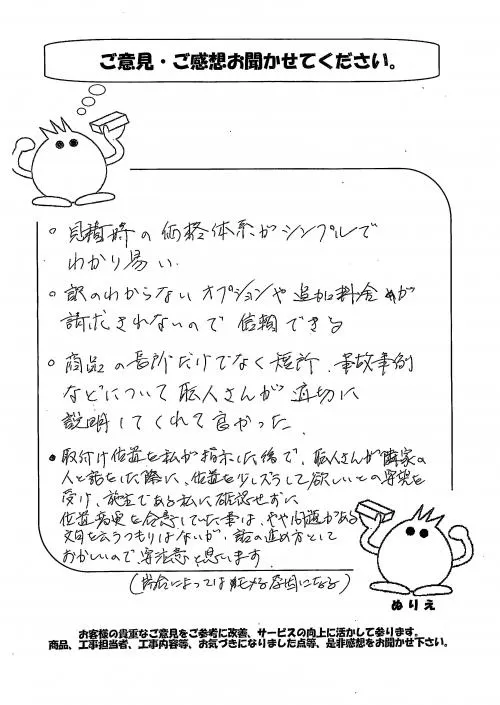 ご意見・ご感想お聞かせてください。
○ 見積時の価格体系がシンプルで
わかり易い
○ 訳のわからないオプションや追加料金が
請求されないので信頼できる
○ 商品の長所だけでなく短所、事故事例
などについて職人さんが適切に
説明してくれて良かった
● 取付け位置を私が指示した後で、職人さんが隣家の
人と話をした際に、位置を少しズラして欲しいとの要望を
受け、施主である私に確認せずに
位置変更を合意していた事は、やや問題がある
文句を云うつもりはないが、話の進め方として
おかしいので、要注意と思います
(場合によっては原因になる)
ぬりえ
お客様の貴重なご意見をご参考に改善、サービスの向上に活かして参ります。
商品、工事担当者、工事内容等、お気づきになりました点等、是非感想をお聞かせ下さい。